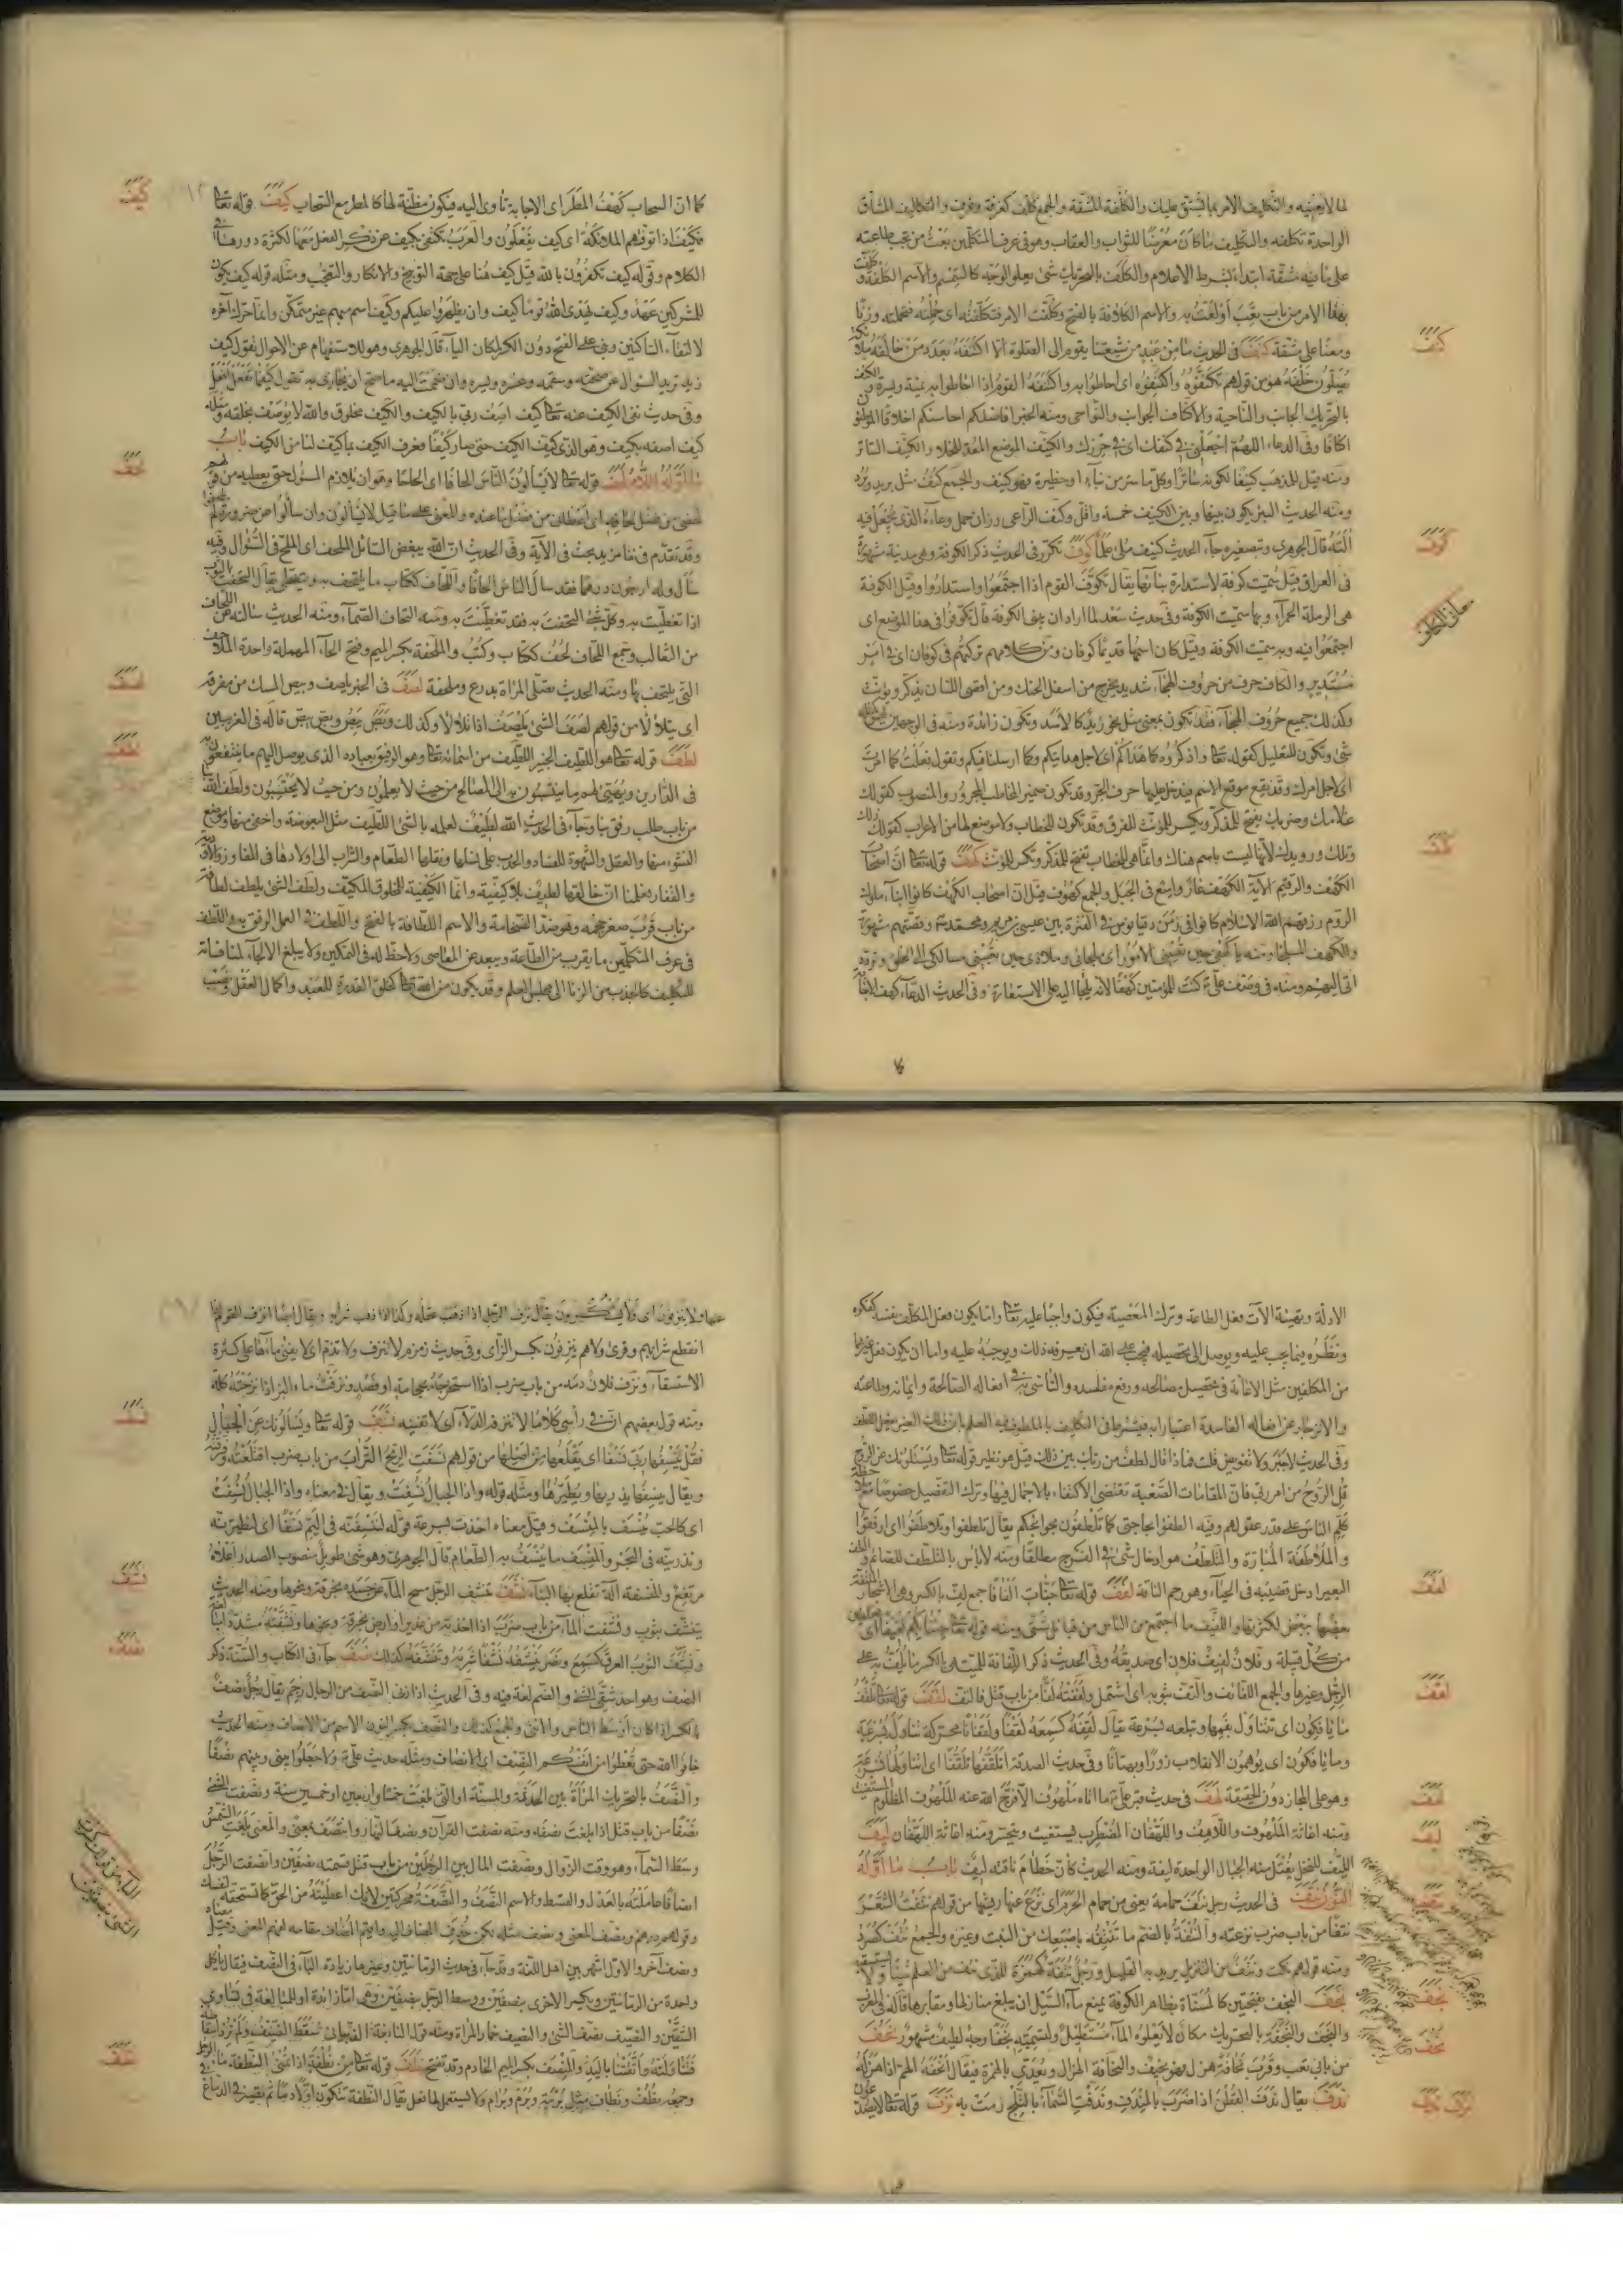 لما لا يعنيه والتكاليف الامر بما يشق عليك والكلفة المشقة والجمع كلف كغرفة وغرف والتكاليف المشاق
الواحدة تكلفة والتكليف ما كان معرضا للثواب والعقاب وهو فى عرف المتكلمين بعث من يجب طاعته
على ما فيه مشقة ابتداء بشرط الاعلام والكلف بالتحريك شئ يعلو الوجه كالسمسم والاسم الكلفة وكلفت
بهذا الامر من باب تعب اولعت به والاسم الكلافة بالفتح وكلفت الامر فتكلفته اى حملته فتحمله وزنا
ومعنا على مشقة كنف فى الحديث ما من عبد من شيعتنا يقوم الى الصلوة الا اكتنفه بعدد من خالفه ملائكة
يصلون خلفه هو من قولهم تكنفوه واكتنفوه اى احاطوا به واكتنفه القوم اذا احاطوا به يمنة ويسرة والكنف
بالتحريك الجانب والناحية والاكناف الجوانب والنواحى ومنه الخبر افاضلكم احاسنكم اخلاقا الموطؤن
اكنافا وفى الدعاء اللهم اجعلنى فى كنفك اى فى حرزك والكنيف الموضع المعد للخلاء والكنيف الساتر
ومنه قيل للمذهب كنيفا لكونه ساترا وكل ما ستر من بناء او حظيرة فهو كنيف والجمع كنف مثل بريد وبرد
ومنه الحديث البئر يكون بينها وبين الكنيف خمسة واقل وكنف الراعى وزان حمل وعاءه الذى يجعل فيه
آلته قال الجوهرى وبتصغيره جاء الحديث كنيف ملئ علما كوف تكرر فى الحديث ذكر الكوفة وهى مدينة مشهورة
فى العراق قيل سميت كوفة لاستدارة بنائها يقال تكوف القوم اذا اجتمعوا واستداروا وقيل الكوفة
هى الرملة الحمراء وبها سميت الكوفة وفى حديث سعد لما اراد ان يبنى الكوفة قال تكوفوا فى هذا الموضع اى
اجتمعوا فيه وبه سميت الكوفة وقيل كان اسمها قديما كوفان ومن كلامهم تركتهم فى كوفان اى فى امر
مستدير والكاف حرف من حروف الهجاء شديد يخرج من اسفل الحنك ومن اقصى اللسان يذكر ويؤنث
وكذلك جميع حروف الهجاء فقد تكون بمعنى مثل نحو زيد كالاسد وتكون زائدة ومنه فى الوجهين ليس كمثله
شئ وتكون للتعليل كقوله تعالى واذكروه كما هداكم اى لاجل هدايتكم وكما ارسلنا فيكم وتقول فعلت كما امرت
اى لاجل امرك وقد تقع موقع الاسم فيدخل عليها حرف الجر وقد تكون ضمير المخاطب المجرور والمنصوب كقولك
غلامك وضربك يفتح للمذكر ويكسر للمؤنث للفرق وقد تكون للخطاب ولا موضع لها من الاعراب كقولك ذلك
وتلك ورويدك لانها ليست باسم هناك وانما هى للخطاب تفتح للمذكر وتكسر للمؤنث كهف قوله تعالى ان اصحاب
الكهف والرقيم الآية الكهف غار واسع فى الجبل والجمع كهوف قيل ان اصحاب الكهف كانوا ابناء ملوك
الروم رزقهم الله الاسلام كانوا فى زمن دقيانوس فى الفترة بين عيسى بن مريم ومحمد وقصتهم مشهورة
والكهف الملجأ ومنه يا كهفى حين تعيينى الامور اى ملجائى وملاذى حين تعيينى مسالكى الى الخلق وتردد
اتى اليهم ومنه فى وصف على كنت للمؤمنين كهفا لانه يلجأ اليه على الاستعارة وفى الحديث الدعاء كهف الاجابة
كنف
كوف
كهف
كما ان السحاب كهف المطر اى الاجابة تاوى اليه فيكون مظنة لها كالمطر مع السحاب كيف قوله تعالى
فكيف اذا توفتهم الملائكة اى كيف يفعلون والعرب تكتفى بكيف عن ذكر الفعل معها لكثرة دورها فى
الكلام وقوله كيف تكفرون بالله قيل كيف هنا على جهة التوبيخ والانكار والتعجب ومثله قوله كيف يكون
للمشركين عهد وكيف يهدى الله قوما كيف وان يظهروا عليكم وكيف اسم مبهم غير متمكن وانما حرك آخره
لالتقاء الساكنين وبنى على الفتح دون الكسر لمكان الياء قال الجوهرى وهو للاستفهام عن الاحوال تقول كيف
زيد تريد السؤال عن صحته وسقمه وعسره ويسره وان ضممت اليه ما صح ان يجازى به تقول كيفما تفعل افعل
وفى حديث نفى الكيف عنه تعالى كيف اصف ربى بالكيف والكيف مخلوق والله لا يوصف بخلقه ومثله
كيف اصفه بكيف وهو الذى كيف الكيف حتى صار كيفا فعرف الكيف بما كيف لنا من الكيف باب
ما اوله اللام لحف قوله تعالى لا يسألون الناس الحافا اى الحاحا وهو ان يلازم المسؤل حتى يعطيه من قولهم
لحفنى من فضل لحافه اى اعطانى من فضل ما عنده والمعنى على ما قيل لا يسألون وان سألوا عن ضرورة لم
وقد تقدم فى نفا مزيد بحث فى الآية وفى الحديث ان الله يبغض السائل الملحف اى الملح فى السؤال وفيه
سأل وله اربعون درهما فقد سأل الناس الحافا واللحاف ككتاب ما يلتحف به ويتغطى يقال التحفت بالثوب
اذا تغطيت به وكل شئ التحفت به فقد تغطيت به ومنه التحاف الصماء ومنه الحديث سألته عن اللحاف
من الثعالب وجمع اللحاف لحف ككتاب وكتب والملحفة بكسر الميم وفتح الحاء المهملة واحدة الملاحف
التى يلتحف بها ومنه الحديث تصلى المرأة بدرع وملحفة لصف فى الخبر يلصف وبيص المسك من مفرقه
اى يتلألأ من قولهم لصف الشئ يلصف اذا تلألأ وكذلك وبص يبص وبص يبص قاله فى الغريبين
لطف قوله تعالى هو اللطيف الخبير اللطيف من اسمائه تعالى وهو الرفيق بعباده الذى يوصل اليهم ما ينتفعون به
فى الدارين ويهيئ لهم ما يتسببون به الى المصالح من حيث لا يعلمون ومن حيث لا يحتسبون ولطف الله بنا
من باب طلب رفق بنا وجاء فى الحديث الله لطيف لعلمه بالشئ اللطيف مثل البعوضة واخفى منها وموضع
النشوء منها والعقل والشهوة للفساد والحدب على نسلها ونقلها الطعام والشراب الى اولادها فى المفاوز والاودية
والقفار فعلمنا ان خالقها لطيف بلا كيفية وانما الكيفية للمخلوق المكيف ولطف الشئ يلطف لطافة
من باب قرب صغر جسمه وهو ضد الضخامة والاسم اللطافة بالفتح واللطف فى العمل الرفق به واللطف
فى عرف المتكلمين ما يقرب من الطاعة ويبعد عن المعاصى ولا حظ له فى التمكين ولا يبلغ الالجاء لمنافاته
للتكليف كالجذب من الزنا الى مجلس العلم وقد يكون من الله تعالى كخلق القدرة للعبد واكمال العقل ونصب
كيف
لحف
لصف
لطف
الادلة وتهيئة آلات فعل الطاعة وترك المعصية فيكون واجبا عليه تعالى واما يكون فعل المكلف نفسه كفكره
ونظره فيما يجب عليه ويوصل الى تحصيله فيجب على الله ان يعرفه ذلك ويوجبه عليه واما ان يكون فعل غيرهما
من المكلفين مثل الاعانة فى تحصيل مصالحه ورفع مفاسده والتأسى به فى افعاله الصالحة وايمانه وطاعته
والانزجار عن افعاله الفاسدة اعتبارا به فيشترط فى التكليف بالملطوف فيه العلم بان ذلك الغير يفعل اللطف
وفى الحديث لا جبر ولا تفويض قلت فماذا قال لطف من ربك بين ذلك قيل هو نظير قوله تعالى ويسئلونك عن الروح
قل الروح من امر ربى فان المقامات الصعبة تقتضى الاكتفاء بالاجمال فيها وترك التفصيل خصوصا مع ملاحظة
كلم الناس على قدر عقولهم وفيه الطفوا بحاجتى كما تلطفون بحوائجكم يقال تلطفوا وتلاطفوا اى ارفقوا
والملاطفة المبارة والتلطف هو ادخال شئ فى الفرج مطلقا ومنه لا باس بالتلطف للصائم والطف
البعير ادخل قضيبه فى الحياء وهو رحم الناقة لفف قوله تعالى جنات الفافا جمع لف بالكسر وهى الاشجار الملتفة
بعضها ببعض لكثرتها واللفيف ما اجتمع من الناس من قبائل شتى ومنه قوله تعالى جئنا بكم لفيفا اى مجتمعين
من كل قبيلة وفلان لفيف فلان اى صديقه وفى الحديث ذكر اللفافة للميت هى بالكسر ما يلف به على
الرجل وغيرها والجمع اللفائف والتف بثوبه اى اشتمل ولففته لفا من باب قتل فالتف لقف قوله تعالى تلقف
ما يافكون اى تتناول بفمها وتبلعه بسرعة يقال لقفه كسمعه لقفا ولقفانا محركة تناوله بسرعة
وما يافكون اى يوهمون الانقلاب زورا وبهتانا وفى حديث الصدقة اتلقفها تلقفا اى اتناولها بسرعة
وهو على المجاز دون الحقيقة لهف فى حديث قبر على ما اتاه ملهوف الا فرج الله عنه الملهوف المظلوم المستغيث
ومنه اغاثة الملهوف واللاهف واللهفان المضطر يستغيث ويتحسر ومنه اغاثة اللهفان ليف
الليف للنخل يفتل منه الحبال الواحدة ليفة ومنه الحديث كان خطام ناقته ليف باب ما اوله
النون نتف فى الحديث رجل نتف حمامة يعنى من حمام الحرم اى نزع عنها ريشها من قولهم نتفت الشعر
نتفا من باب ضرب نزعته والنتفة بالضم ما تنتفه باصبعك من النبت وغيره والجمع نتف كصرد
ومنه قولهم نكت ونتف من التنزيل يريد به القليل ورجل نتفة كهمزة للذى نتف من العلم شيئا ولا يستقصيه
نجف النجف بفتحتين كالمسناة بظاهر الكوفة يمنع ماء السيل ان يبلغ منازلها ومقابرها قاله فى المغرب
والنجف والنجفة بالتحريك مكان لا يعلوه الماء مستطيل ولتسميته نجفا وجه لطيف مشهور نحف
من بابى تعب وقرب نحافة هزل فهو نحيف والنحافة الهزال ويعدى بالهمزة فيقال انحفه الهم اذا هزله
ندف يقال ندف القطن اذا ضرب بالمندف وندفت السماء بالثلج رمت به نزف قوله تعالى لا يصدعون
لفف
لقف
لهف
ليف
نتف
نجف
نحف
ندف نزف
عنها ولا ينزفون اى ولا يسكرون يقال نزف الرجل اذا ذهب عقله وكذا اذا ذهب شرابه ويقال ايضا انزف القوم اذا
انقطع شرابهم وقرئ ولا هم ينزفون بكسر الزاى وفى حديث زمزم لا تنزف ولا تذم اى لا يفنى ماءها على كثرة
الاستسقاء ونزف فلان دمه من باب ضرب اذا استخرجه بحجامة او فصد ونزفت ماء البئر اذا نزحته كله
ومنه قول بعضهم ان فى رأسى كلاما لا تنزفه الدلاء اى لا تفنيه نسف قوله تعالى ويسألونك عن الجبال
فقل ينسفها ربى نسفا اى يقلعها من اصلها من قولهم نسفت الريح التراب من باب ضرب اقتلعته وفرقته
ويقال ينسفها يذريها ويطيرها ومثله قوله واذا الجبال نسفت ويقال فى معناه واذا الجبال نسفت
اى كالحب ينسف بالمنسف وقيل معناه اخذت بسرعة قوله لننسفنه فى اليم نسفا اى لنطيرنه
ونذرينه فى البحر والمنسف ما ينسف به الطعام قال الجوهرى وهو شئ طويل منصوب الصدر اعلاه
مرتفع والمنسفة آلة تقلع بها البناء نشف تنشف الرجل مسح الماء عن جسده بخرقة ونحوها ومنه الحديث
يتنشف بثوب ونشفت الماء من باب ضرب اذا اخذته من غدير او ارض بخرقة ونحوها ونشفته مشددا
ونشف الثوب العرق كسمع ونصر ينشفه نشفا شربه وتنشفه كذلك نصف جاء فى الكتاب والسنة ذكر
النصف وهو احد شقى الشئ والضم لغة فيه وفى الحديث اذا زنى النصف من الرجال رجم يقال رجل نصف
بالكسر اذا كان اوسط الناس والانثى والجمع كذلك والنصف بكسر النون الاسم من الانصاف ومنه الحديث
خافوا الله حتى تعطوا من انفسكم النصف اى الانصاف ومثله حديث على ولا جعلوا بينى وبينهم نصفا
والنصف بالتحريك المرأة بين الحدثة والمسنة او التى بلغت خمسا واربعين او خمسين سنة ونصفت الشئ
نصفا من باب قتل اذا بلغت نصفه ومنه نصفت القرآن ونصف النهار وانتصف بمعنى والمعنى بلغت الشمس
وسط السماء وهو وقت الزوال ونصفت المال بين الرجلين من باب قتل قسمته نصفين وانصفت الرجل
انصافا عاملته بالعدل والقسط والاسم النصف والنصفة محركتين لانك اعطيته من الحق كما تستحقه لنفسك
وقولهم درهم ونصف المعنى ونصف مثله لكن حذف المضاف اليه واقيم المضاف مقامه لفهم المعنى وقيل معناه
ونصف آخر والاول اشهر بين اهل اللغة وقد جاء فى حديث الرمانتين وغيرهما زيادة الباء فى النصف فيقال ياكل
واحدة من الرمانتين ويكسر الاخرى بنصفين ووسط الرجل بنصفين وهى اما زائدة او للمبالغة فى تساوى
الشقين والنصيف نصف الشئ والنصيف خمار المرأة ومنه قول النابغة سقط النصيف ولم ترد اسقاطه
فتناولته واتقتنا باليد والمنصف بكسر الميم الخادم وقد تفتح نطف قوله تعالى من نطفة اذا تمنى النطفة ماء الرجل
وجمعه نطف ونطاف مثل برمة وبرم وبرام ولا يستعمل لها فعل يقال النطفة تتكون اولا دما ثم تصير فى الدماغ
نسف
نشف
نصف
نطف